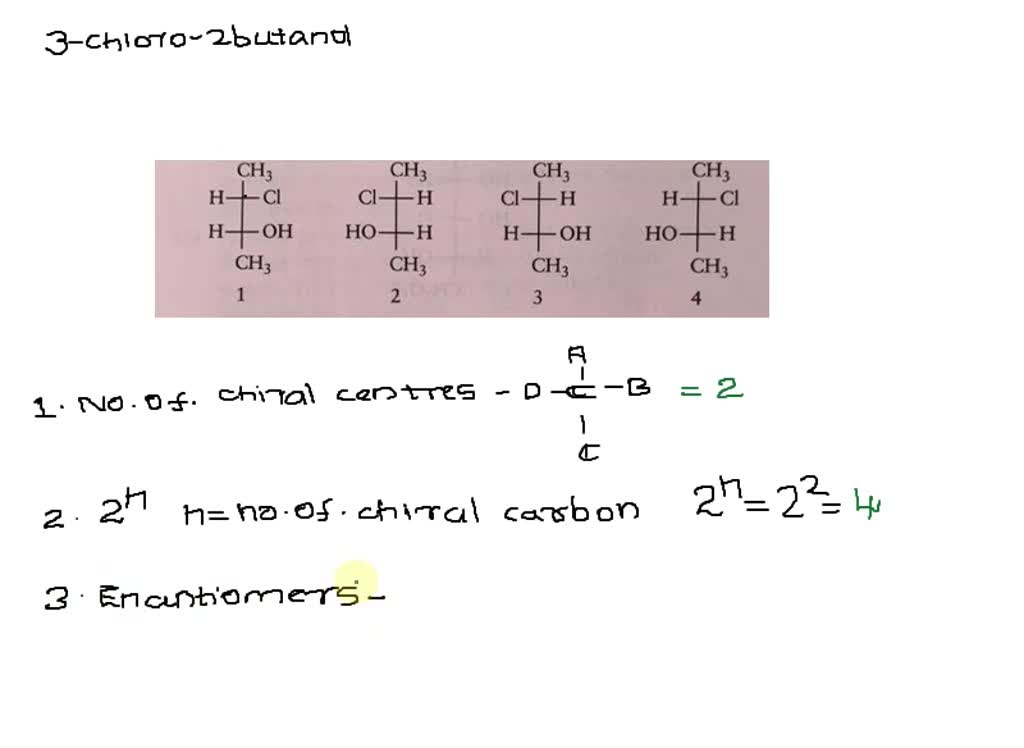 3-chloro-2butanol
CH3 CH3 CH3 CH3
H Cl Cl H Cl H H Cl
H OH HO H H OH HO H
CH3 CH3 CH3 CH3
1 2 3 4
A
1. No. of. chiral centres - D - C - B = 2
C
2. 2^n n = no. of. chiral carbon 2^n = 2^2 = 4
3. Enantiomers -